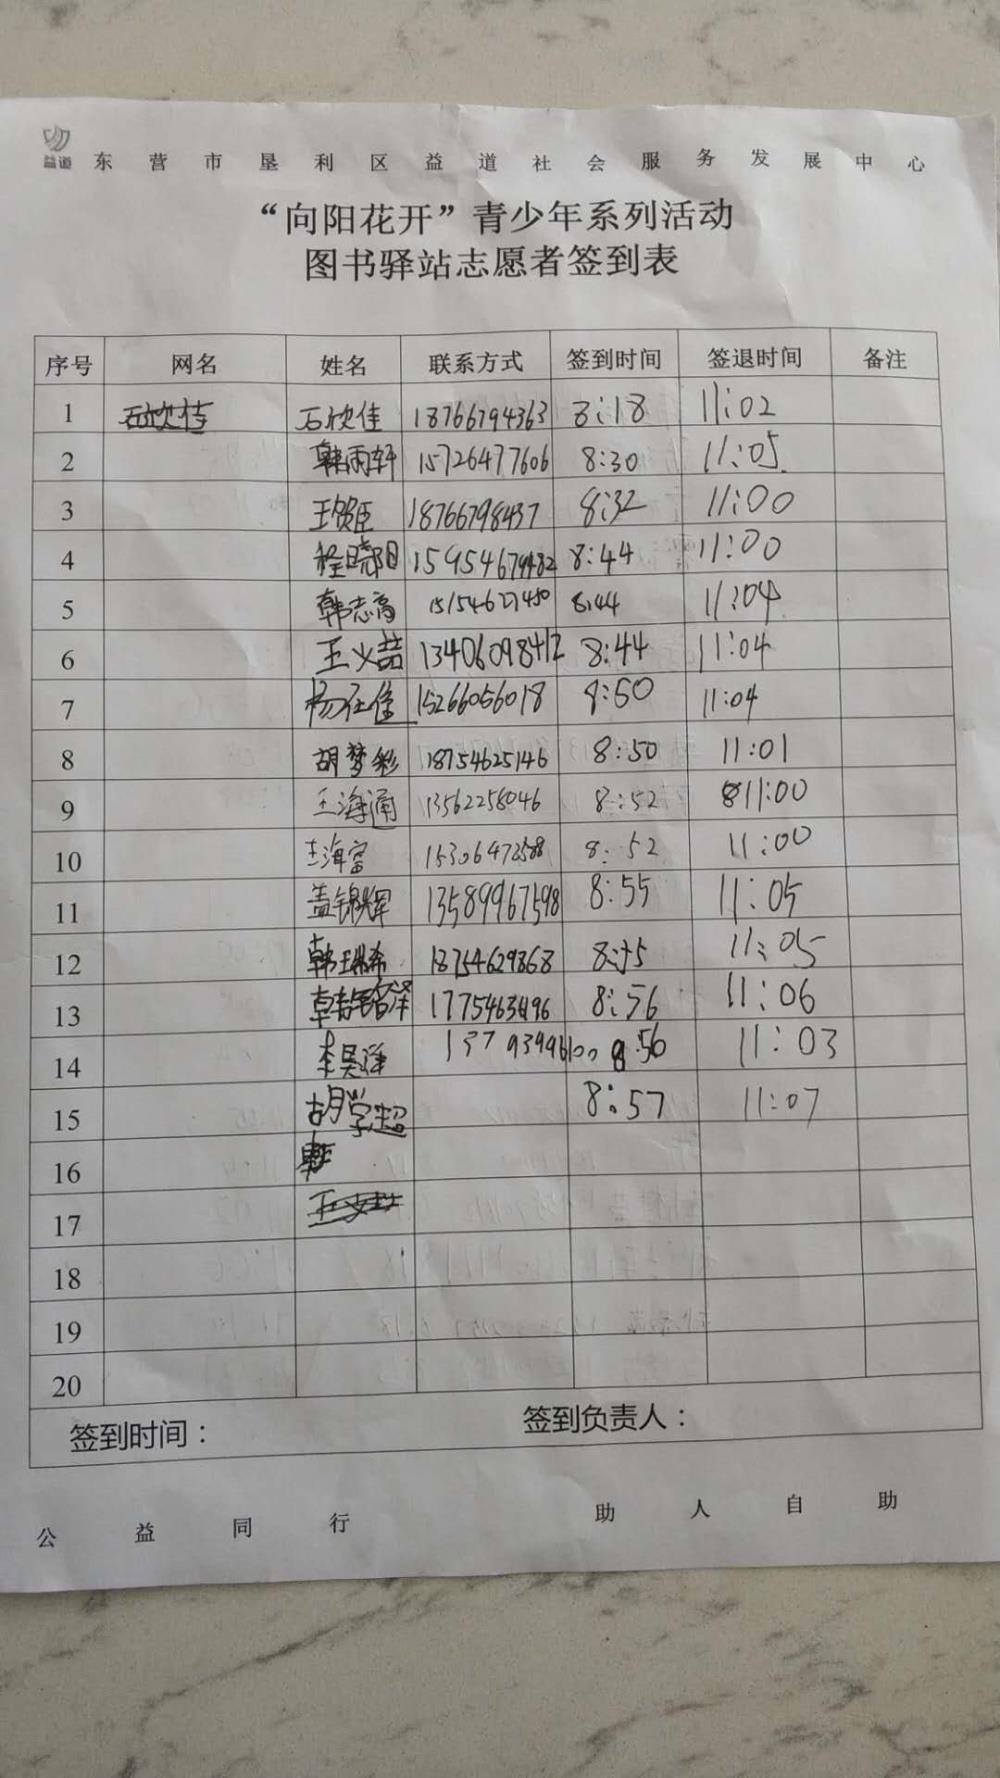 益道 东营市垦利区益道社会服务发展中心
“向阳花开”青少年系列活动
图书驿站志愿者签到表
序号 网名 姓名 联系方式 签到时间 签退时间 备注
1 石欣佳 石欣佳 18766794363 8:18 11:02
2 韩雨轩 15726477606 8:30 11:05
3 王贺臣 18766798437 8:32 11:00
4 程晓阳 15954679482 8:44 11:00
5 韩志高 15154627450 8:44 11:04
6 王义喆 13406098412 8:44 11:04
7 15266056018 8:50 11:04
8 胡梦彩 18754625146 8:50 11:01
9 王海通 13562258046 8:52 11:00
10 王海富 8:52 11:00
11 盖锦辉 13589967598 8:55 11:05
12 18754629868 8:55 11:05
13 8:56 11:06
14 李昊泽 8:56 11:03
15 胡学超 8:57 11:07
16
17
18
19
20
签到时间: 签到负责人:
公益同行 助人自助